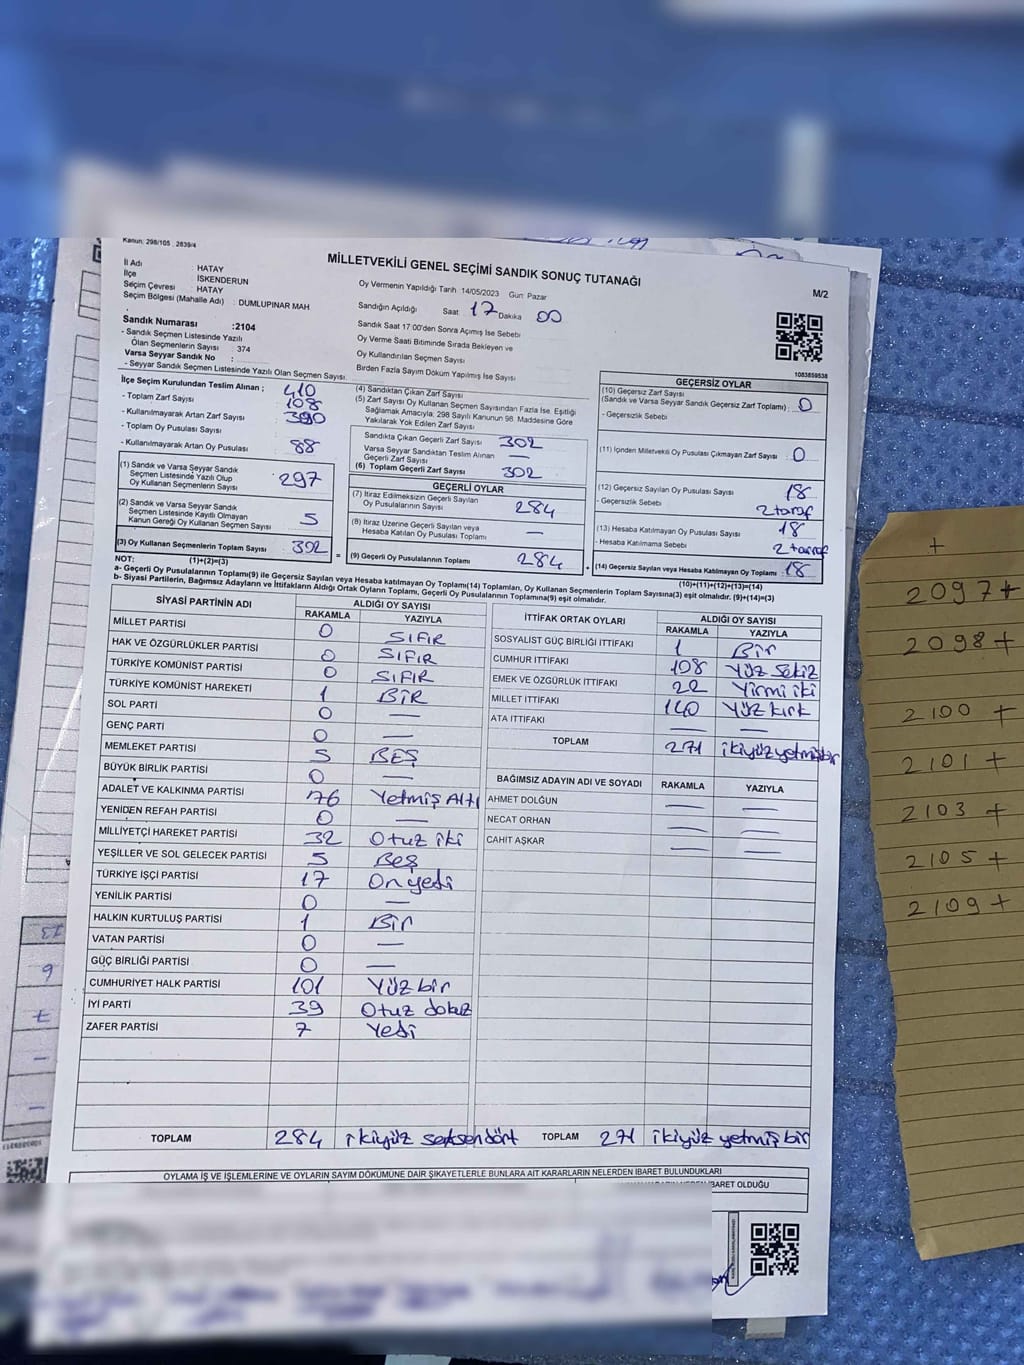 Kanun: 298/105 , 2839/4
MİLLETVEKİLİ GENEL SEÇİMİ SANDIK SONUÇ TUTANAĞI
M/2
İl Adı : HATAY
İlçe : İSKENDERUN
Seçim Çevresi : HATAY
Seçim Bölgesi (Mahalle Adı) : DUMLUPINAR MAH
Sandık Numarası :2104
- Sandık Seçmen Listesinde Yazılı
Olan Seçmenlerin Sayısı : 374
Varsa Seyyar Sandık No :
- Seyyar Sandık Seçmen Listesinde Yazılı Olan Seçmen Sayısı:
Oy Vermenin Yapıldığı Tarih 14/05/2023 Gün Pazar
Sandığın Açıldığı Saat 17 Dakika 00
Sandık Saat 17.00'den Sonra Açımış İse Sebebi
Oy Verme Saati Bitiminde Sırada Bekleyen ve
Oy Kullandırılan Seçmen Sayısı
Birden Fazla Sayım Döküm Yapılmış İse Sayısı
1083859538
İlçe Seçim Kurulundan Teslim Alınan ;
- Toplam Zarf Sayısı 410
- Kullanılmayarak Artan Zarf Sayısı 108
- Toplam Oy Pusulası Sayısı 390
- Kullanılmayarak Artan Oy Pusulası 88
(1) Sandık ve Varsa Seyyar Sandık
Seçmen Listesinde Yazılı Olup
Oy Kullanan Seçmenlerin Sayısı 297
(2) Sandık ve Varsa Seyyar Sandık
Seçmen Listesinde Kayıtlı Olmayan
Kanun Gereği Oy Kullanan Seçmen Sayısı 5
(3) Oy Kullanan Seçmenlerin Toplam Sayısı 302
(1)+(2)=(3)
(4) Sandıktan Çıkan Zarf Sayısı
(5) Zarf Sayısı Oy Kullanan Seçmen Sayısından Fazla İse, Eşitliği
Sağlamak Amacıyla; 298 Sayılı Kanunun 98. Maddesine Göre
Yakılarak Yok Edilen Zarf Sayısı
Sandıkta Çıkan Geçerli Zarf Sayısı 302
Varsa Seyyar Sandıktan Teslim Alınan
Geçerli Zarf Sayısı —
(6) Toplam Geçerli Zarf Sayısı 302
GEÇERLİ OYLAR
(7) İtiraz Edilmeksizin Geçerli Sayılan
Oy Pusulalarının Sayısı 284
(8) İtiraz Üzerine Geçerli Sayılan veya
Hesaba Katılan Oy Pusulası Toplamı —
= (9) Geçerli Oy Pusulalarının Toplamı 284
GEÇERSİZ OYLAR
(10) Geçersiz Zarf Sayısı
(Sandık ve Varsa Seyyar Sandık Geçersiz Zarf Toplamı) : 0
- Geçersizlik Sebebi
(11) İçinden Milletvekili Oy Pusulası Çıkmayan Zarf Sayısı 0
(12) Geçersiz Sayılan Oy Pusulası Sayısı 18
- Geçersizlik Sebebi 2 taraf
(13) Hesaba Katılmayan Oy Pusulası Sayısı 18
- Hesaba Katılmama Sebebi 2 taraf
+ (14) Geçersiz Sayılan veya Hesaba Katılmayan Oy Toplamı 18
(10)+(11)+(12)+(13)=(14)
NOT:
a- Geçerli Oy Pusulalarının Toplamı(9) ile Geçersiz Sayılan veya Hesaba katılmayan Oy Toplamı(14) Toplamları, Oy Kullanan Seçmenlerin Toplam Sayısına(3) eşit olmalıdır. (9)+(14)=(3)
b- Siyasi Partilerin, Bağımsız Adayların ve İttifakların Aldığı Ortak Oyların Toplamı, Geçerli Oy Pusulalarının Toplamına(9) eşit olmalıdır.
SİYASİ PARTİNİN ADI ALDIĞI OY SAYISI
RAKAMLA YAZIYLA
MİLLET PARTİSİ 0 SIFIR
HAK VE ÖZGÜRLÜKLER PARTİSİ 0 SIFIR
TÜRKİYE KOMÜNİST PARTİSİ 0 SIFIR
TÜRKİYE KOMÜNİST HAREKETİ 1 BİR
SOL PARTİ 0 —
GENÇ PARTİ 0 —
MEMLEKET PARTİSİ 5 BEŞ
BÜYÜK BİRLİK PARTİSİ 0 —
ADALET VE KALKINMA PARTİSİ 76 Yetmiş Altı
YENİDEN REFAH PARTİSİ 0 —
MİLLİYETÇİ HAREKET PARTİSİ 32 Otuz iki
YEŞİLLER VE SOL GELECEK PARTİSİ 5 Beş
TÜRKİYE İŞÇİ PARTİSİ 17 On yedi
YENİLİK PARTİSİ 0 —
HALKIN KURTULUŞ PARTİSİ 1 Bir
VATAN PARTİSİ 0 —
GÜÇ BİRLİĞİ PARTİSİ 0 —
CUMHURİYET HALK PARTİSİ 101 Yüz bir
İYİ PARTİ 39 Otuz dokuz
ZAFER PARTİSİ 7 Yedi
TOPLAM 284 ikiyüz seksendört
İTTİFAK ORTAK OYLARI ALDIĞI OY SAYISI
RAKAMLA YAZIYLA
SOSYALİST GÜÇ BİRLİĞİ İTTİFAKI 1 Bir
CUMHUR İTTİFAKI 108 Yüz Sekiz
EMEK VE ÖZGÜRLÜK İTTİFAKI 22 Yirmi iki
MİLLET İTTİFAKI 140 Yüz kırk
ATA İTTİFAKI — —
TOPLAM 271 ikiyüz yetmişbir
BAĞIMSIZ ADAYIN ADI VE SOYADI RAKAMLA YAZIYLA
AHMET DOLĞUN — —
NECAT ORHAN — —
CAHİT AŞKAR — —
TOPLAM 271 ikiyüz yetmiş bir
OYLAMA İŞ VE İŞLEMLERİNE VE OYLARIN SAYIM DÖKÜMÜNE DAİR ŞİKAYETLERLE BUNLARA AİT KARARLARIN NELERDEN İBARET BULUNDUKLARI
İBARET OLDUĞU
+
2097+
2098+
2100 +
2101 +
2103 +
2105 +
2109 +